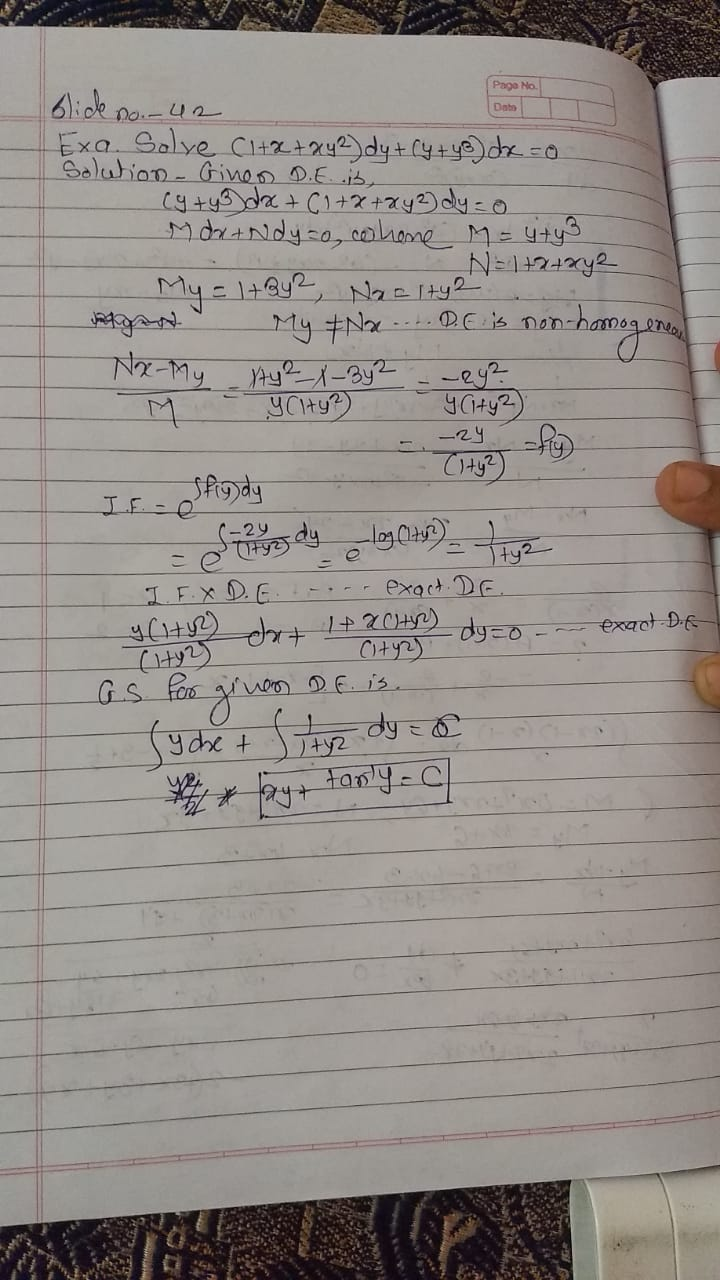 Page No.
Date
Slide no.-42
Exa. Solve (1+x+xy²)dy+(y+y³)dx=0
Solution - Given D.E. is,
(y+y³)dx+(1+x+xy²)dy=0
Mdx+Ndy=0, where M=y+y³
N=1+x+xy²
My=1+3y², Nx=1+y²
My≠Nx .... D.E. is non-homogeneou
Nx-My/M = 1+y²-1-3y²/y(1+y²) = -2y²/y(1+y²)
= -2y/(1+y²) = f(y)
I.F. = e^∫f(y)dy
= e^∫-2y/(1+y²) dy = e^-log(1+y²) = 1/1+y²
I.F. X D.E. ..... exact. D.E.
y(1+y²)/(1+y²) dx + 1+x(1+y²)/(1+y²) dy=0 ---- exact D.E
G.S for given D.E. is.
∫ydx + ∫1/1+y² dy = C
xy+ tan⁻¹y = C